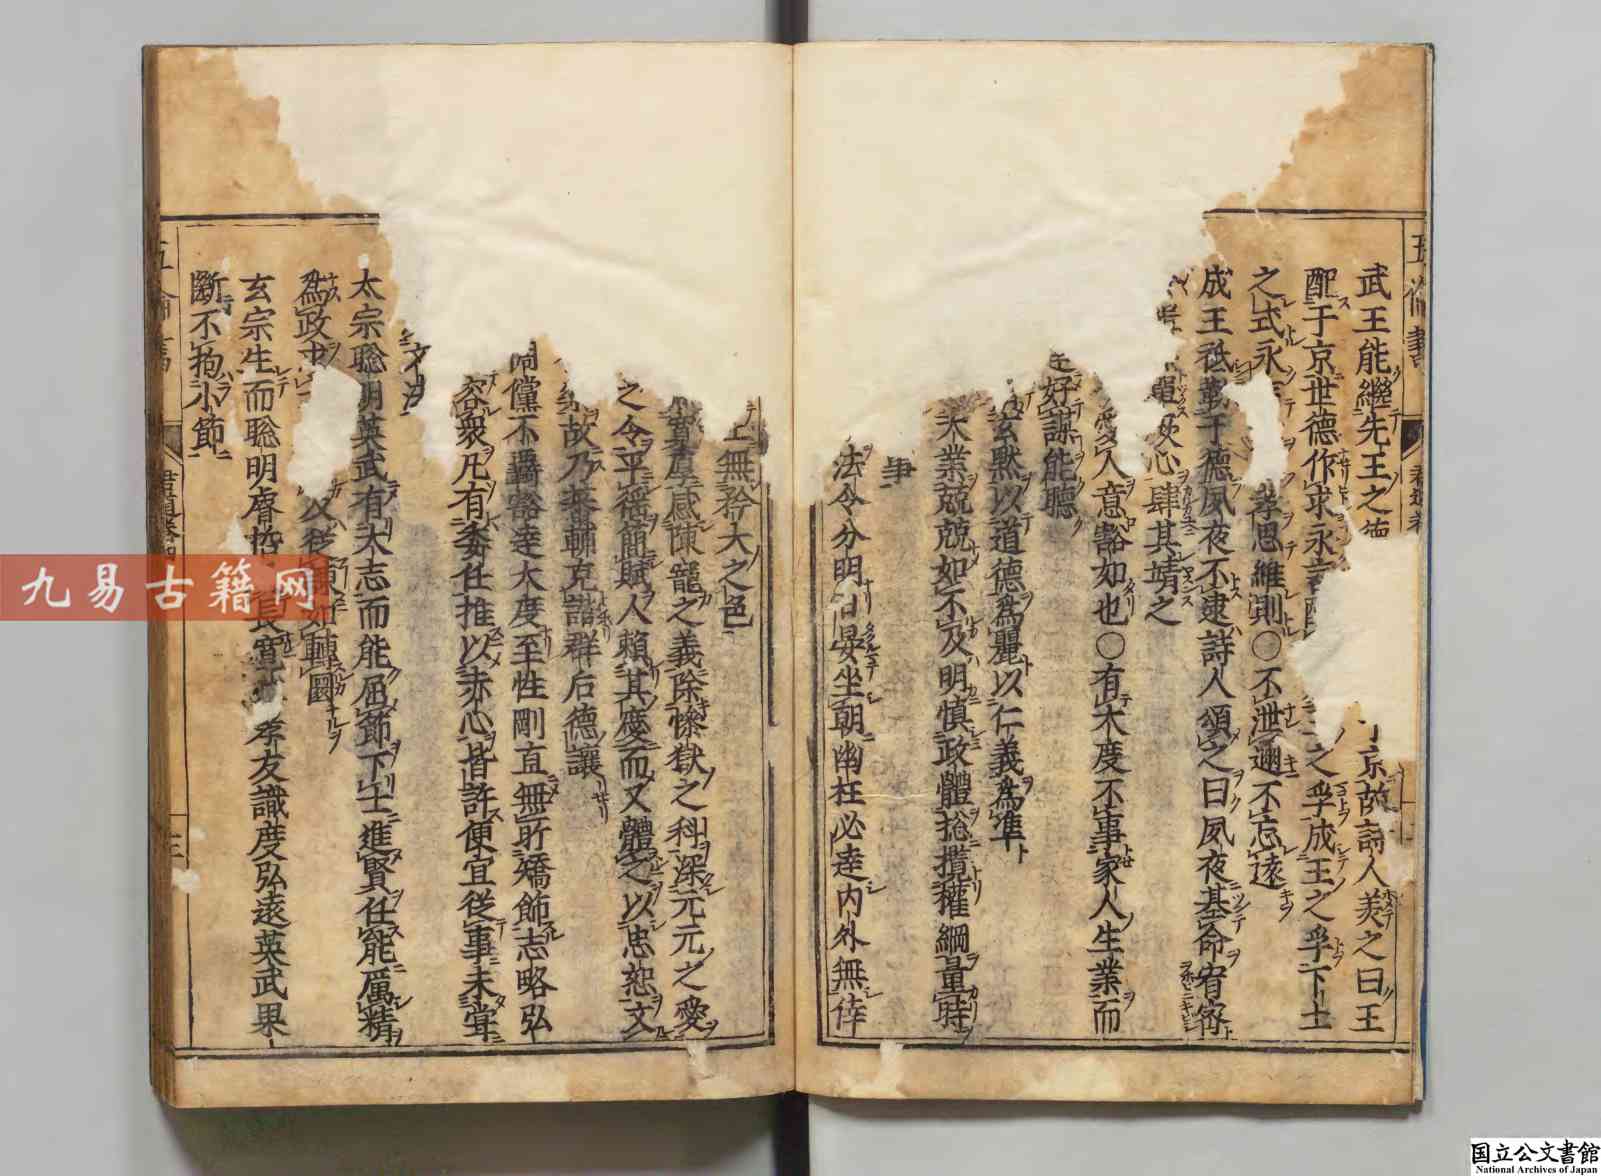 武王能繼先王之德
于京故詩人美之曰王
配于京世德作求永言配
之孚成王之孚下土
之式永
孝思維則○不泄邇不忘遠
成王祗勤于德夙夜不逮詩人頌之曰夙夜基命宥宻
單厥心肆其靖之
愛人意豁如也○有大度不事家人生業而
好謀能聽
玄默以道德爲麗以仁義爲凖
大業兢兢如不及明慎政體捴攬權綱量時
事
法令分明日晏坐朝幽枉必達内外無倖
上無矜大之色
寛厚感陳寵之義除慘獄之科深元元之愛
之令平徭簡賦人賴其慶而又體之以忠恕文
故乃来輔克諧群后德讓
倜儻不羈豁達大度至性剛直無所矯飾志略弘
容衆凡有委任推以赤心皆許便宜従事未甞
文
太宗聡明英武有大志而能屈節下士進賢任能厲精
爲政求
以従
如轉圜
玄宗生而聡明膚
長寛
孝友識度弘遠英武果
斷不抱小節
君道卷四
三
九易古籍网
国立公文書館
National Archives of Japan